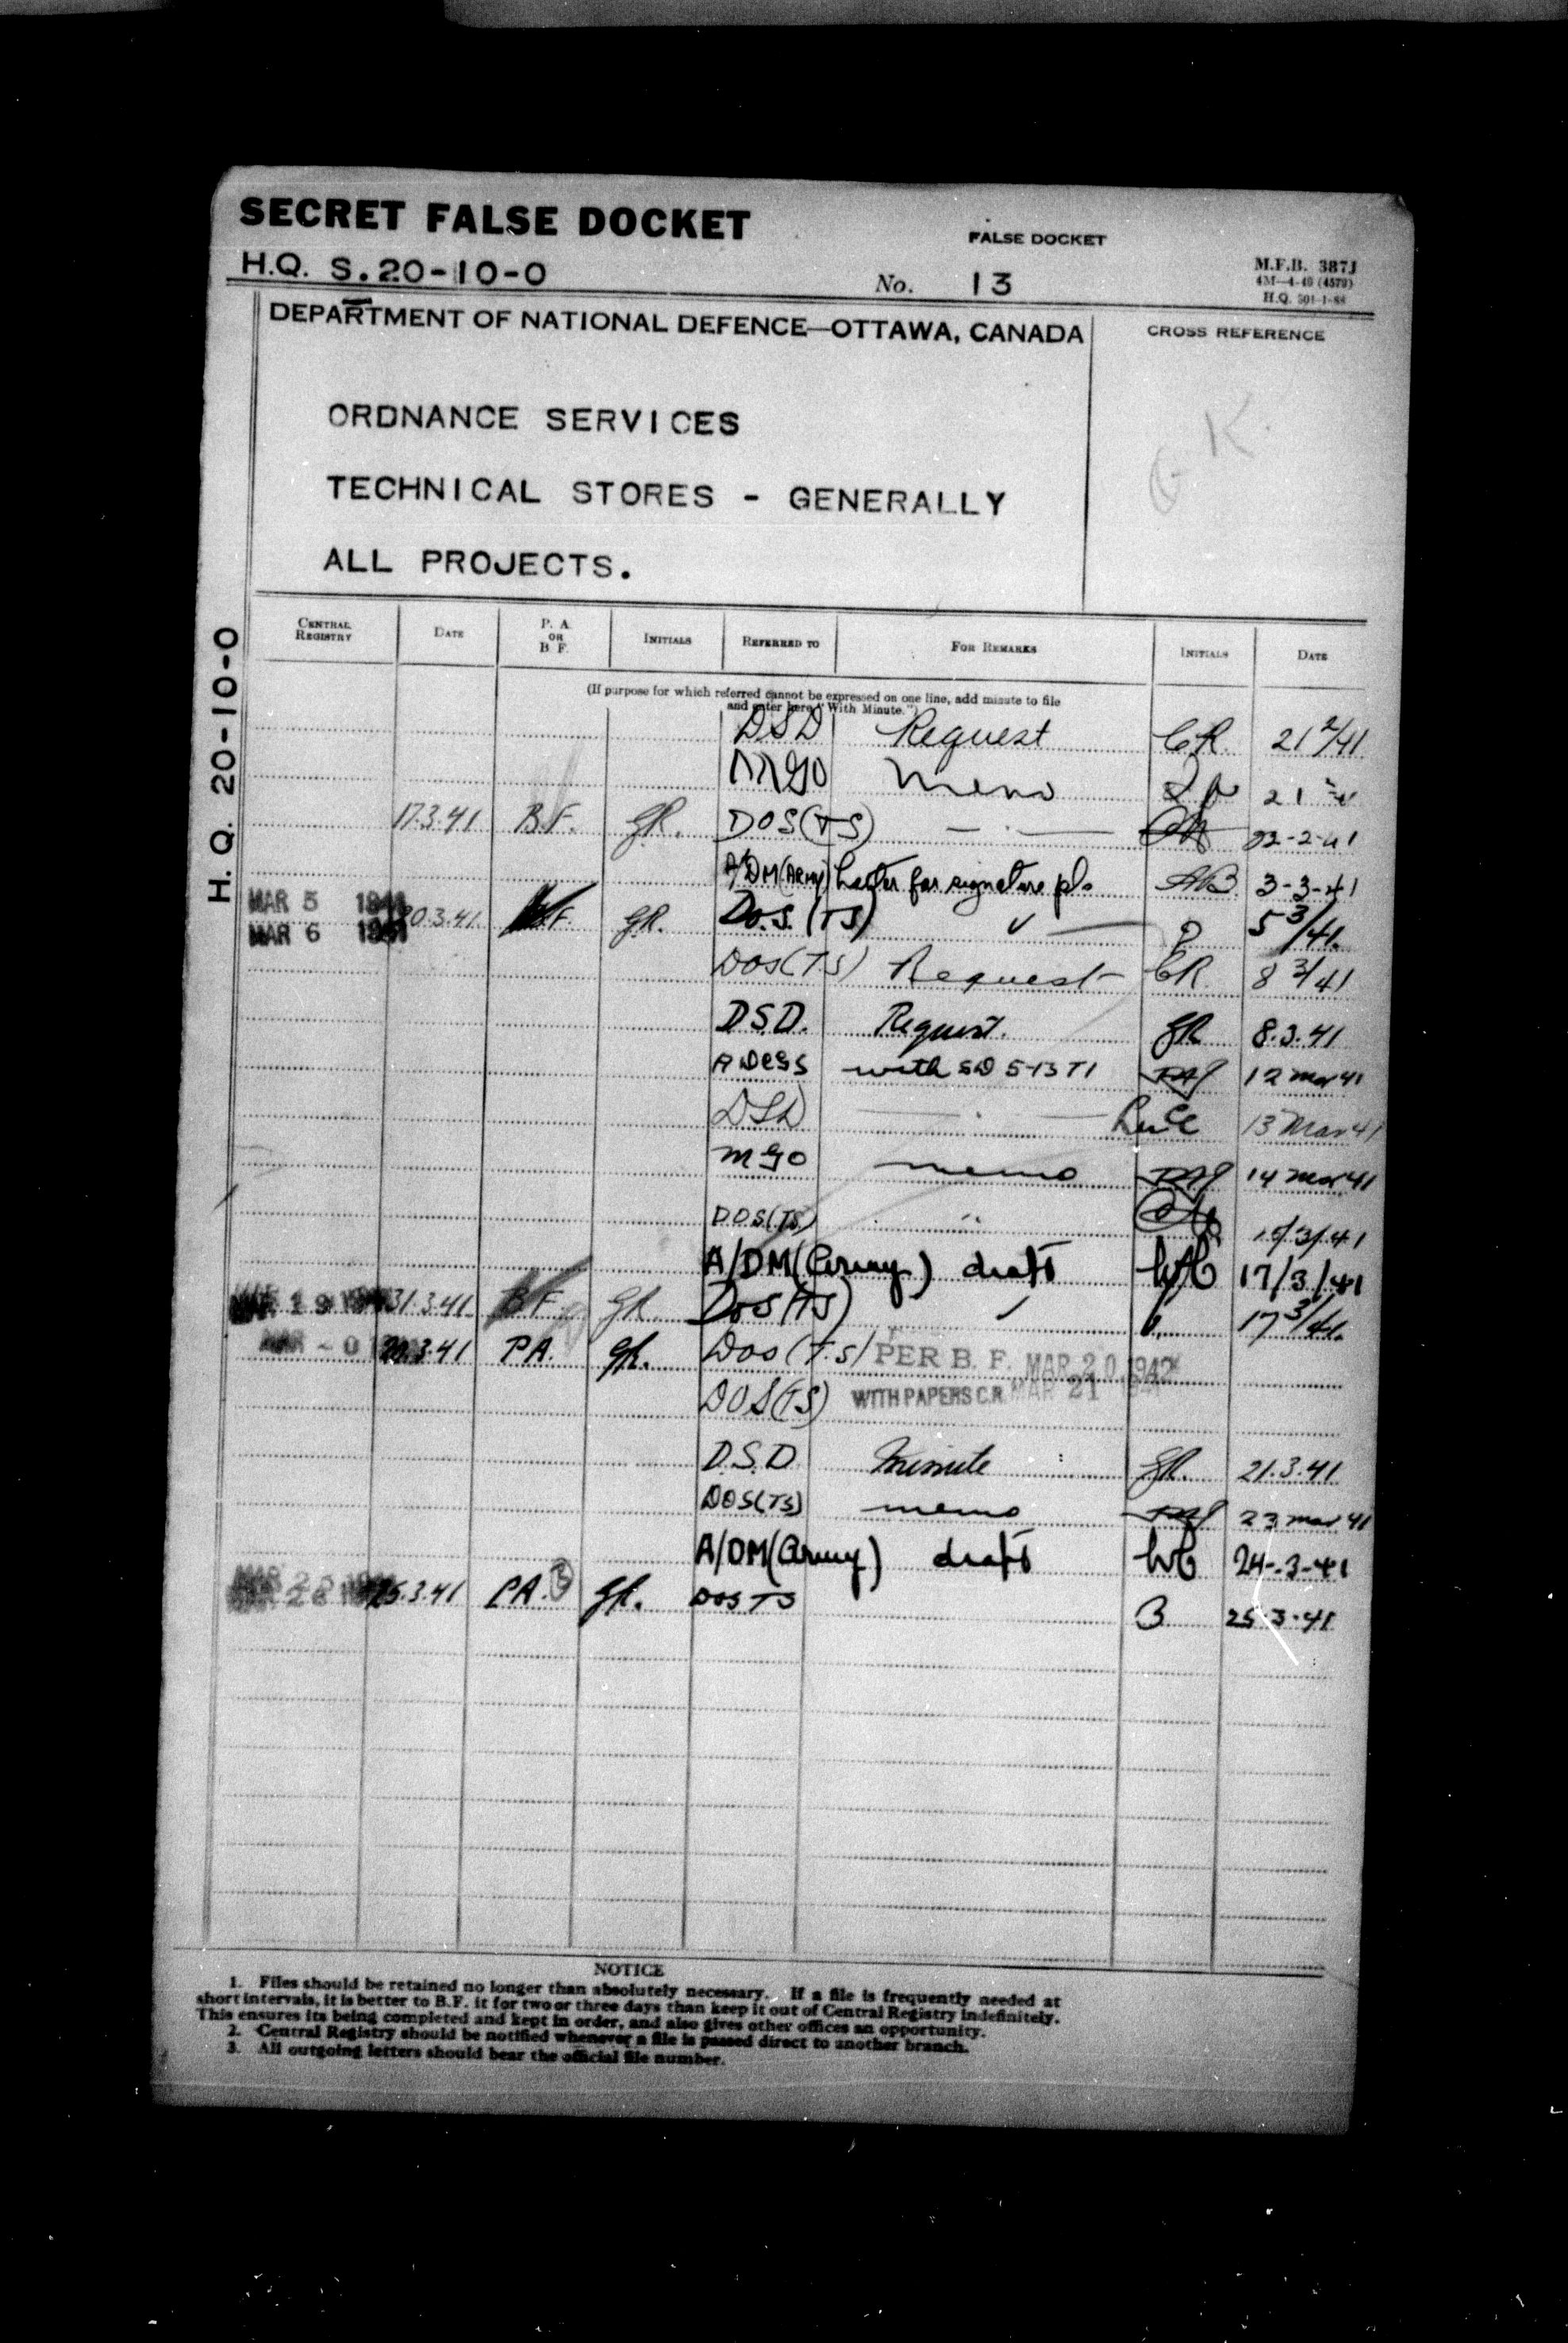 SECRET FALSE DOCKET
FALSE DOCKET
H.Q. S.20-10-0 No. 13
M.F.B. 387J
4M—4-40 (4579)
H.Q. 501-1-88
DEPARTMENT OF NATIONAL DEFENCE—OTTAWA, CANADA
CROSS REFERENCE
ORDNANCE SERVICES
TECHNICAL STORES - GENERALLY
ALL PROJECTS.
H. Q. 20-10-0
CENTRAL REGISTRY DATE P. A. OR B F. INITIALS REFERRED TO FOR REMARKS INITIALS DATE
(If purpose for which referred cannot be expressed on one line, add minute to file
and enter here "With Minute.")
DSD Request CR 21 2/41
MGO Memo 21
17.3.41 B.F. GR. DOS(TS) 22-2-41
A/DM(Army) Letter for signature pl. AB 3-3-41
MAR 5 1941
MAR 6 1941 20.3.41 B.F. GR. D.O.S. (TS) ✓ 5 3/41.
DOS(TS) Request CR 8 3/41
D.S.D. Request. GR 8.3.41
with SD 5-13 T1 12 Mar 41
DSD 13 Mar 41
MGO memo 14 Mar 41
DOS(TS) " /3/41
A/DM(Army) draft 17/3/41
31.3.41 B.F. GR. DOS(TS) ✓ 17 3/41.
20.3.41 P.A. GR. DOS(T.S) PER B. F. MAR 20 1942
DOS(TS) WITH PAPERS C.R. MAR 21
D.S.D Minute GR. 21.3.41
DOS(TS) memo 23 Mar 41
A/DM(Army) draft 24-3-41
25.3.41 P.A. 3 GR. DOS TS B 25.3.41
NOTICE
1. Files should be retained no longer than absolutely necessary. If a file is frequently needed at
short intervals, it is better to B.F. it for two or three days than keep it out of Central Registry indefinitely.
This ensures its being completed and kept in order, and also gives other offices an opportunity.
2. Central Registry should be notified whenever a file is passed direct to another branch.
3. All outgoing letters should bear the official file number.